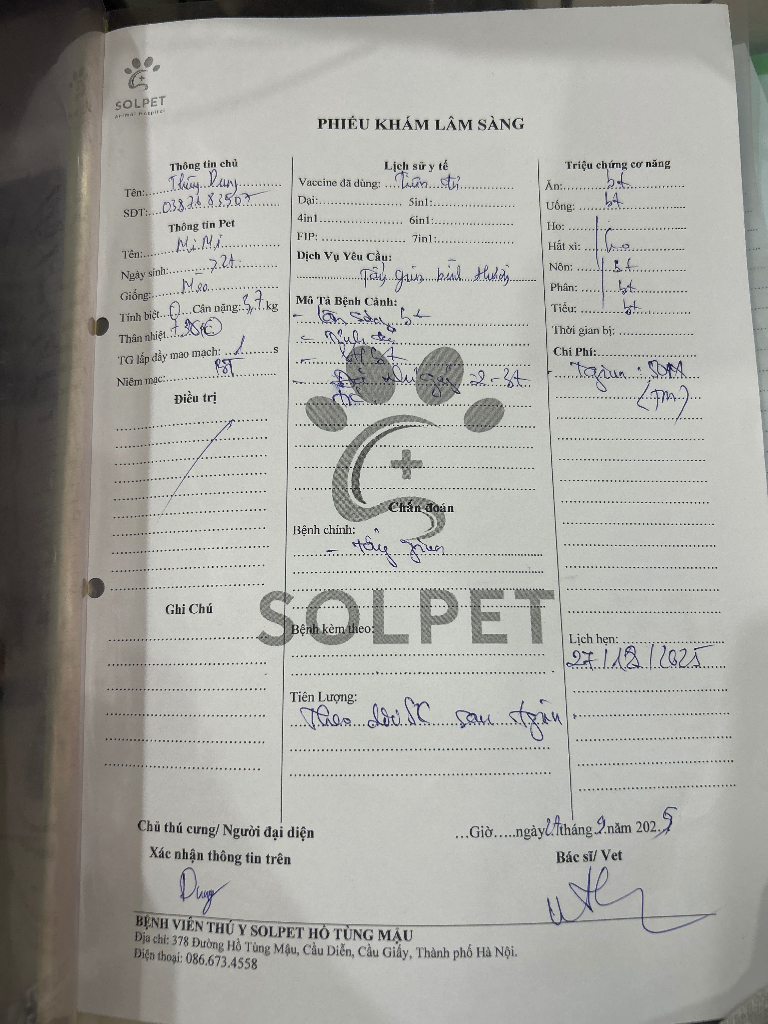 SOLPET
Animal Hospital
PHIẾU KHÁM LÂM SÀNG
Thông tin chủ
Tên: Thùy Dung
SDT:
Thông tin Pet
Tên: Mi Mi
Ngày sinh:
Giống: Mèo
Tính biệt: Cân nặng: 3,7 kg
Thân nhiệt:
TG lấp đầy mao mạch: 1 s
Niêm mạc: BT
Điều trị
Ghi Chú
Lịch sử y tế
Vaccine đã dùng:
Dại: 5in1:
4in1 6in1:
FIP: 7in1:
Dịch Vụ Yêu Cầu:
Tẩy giun
Mô Tả Bệnh Cảnh:
- Lâm sàng bt
Chẩn đoán
Bệnh chính:
- Tẩy giun
SOLPET
Bệnh kèm theo:
Tiên Lượng:
Theo dõi SK sau tgiun
Triệu chứng cơ năng
Ăn: bt
Uống: bt
Ho:
Hắt xì:
Nôn: bt
Phân: bt
Tiểu: bt
Thời gian bị:
Chi Phí:
- Tgiun :
(TM)
Lịch hẹn:
27/12/2025
Chủ thú cưng/ Người đại diện
Xác nhận thông tin trên
Dung
...Giờ.....ngày tháng 9 năm 2025
Bác sĩ/ Vet
BỆNH VIỆN THÚ Y SOLPET HỒ TÙNG MẬU
Địa chỉ: 378 Đường Hồ Tùng Mậu, Cầu Diễn, Cầu Giấy, Thành phố Hà Nội.
Điện thoại: 086.673.4558